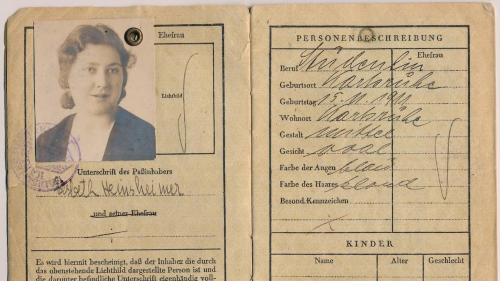 Ehefrau
Lichtbild
Unterschrift des Paßinhabers
Heinsheimer
und seiner Ehefrau
Es wird hiermit bescheinigt, daß der Inhaber die durch
das obenstehende Lichtbild dargestellte Person ist und
die darunter befindliche Unterschrift eigenhändig voll-
PERSONENBESCHREIBUNG
Ehefrau
Beruf Studentin
Geburtsort Karlsruhe
Geburtstag 15. 1911
Wohnort Karlsruhe
Gestalt mittel
Gesicht oval
Farbe der Augen blau
Farbe des Haares blond
Besond. Kennzeichen
KINDER
Name Alter Geschlecht